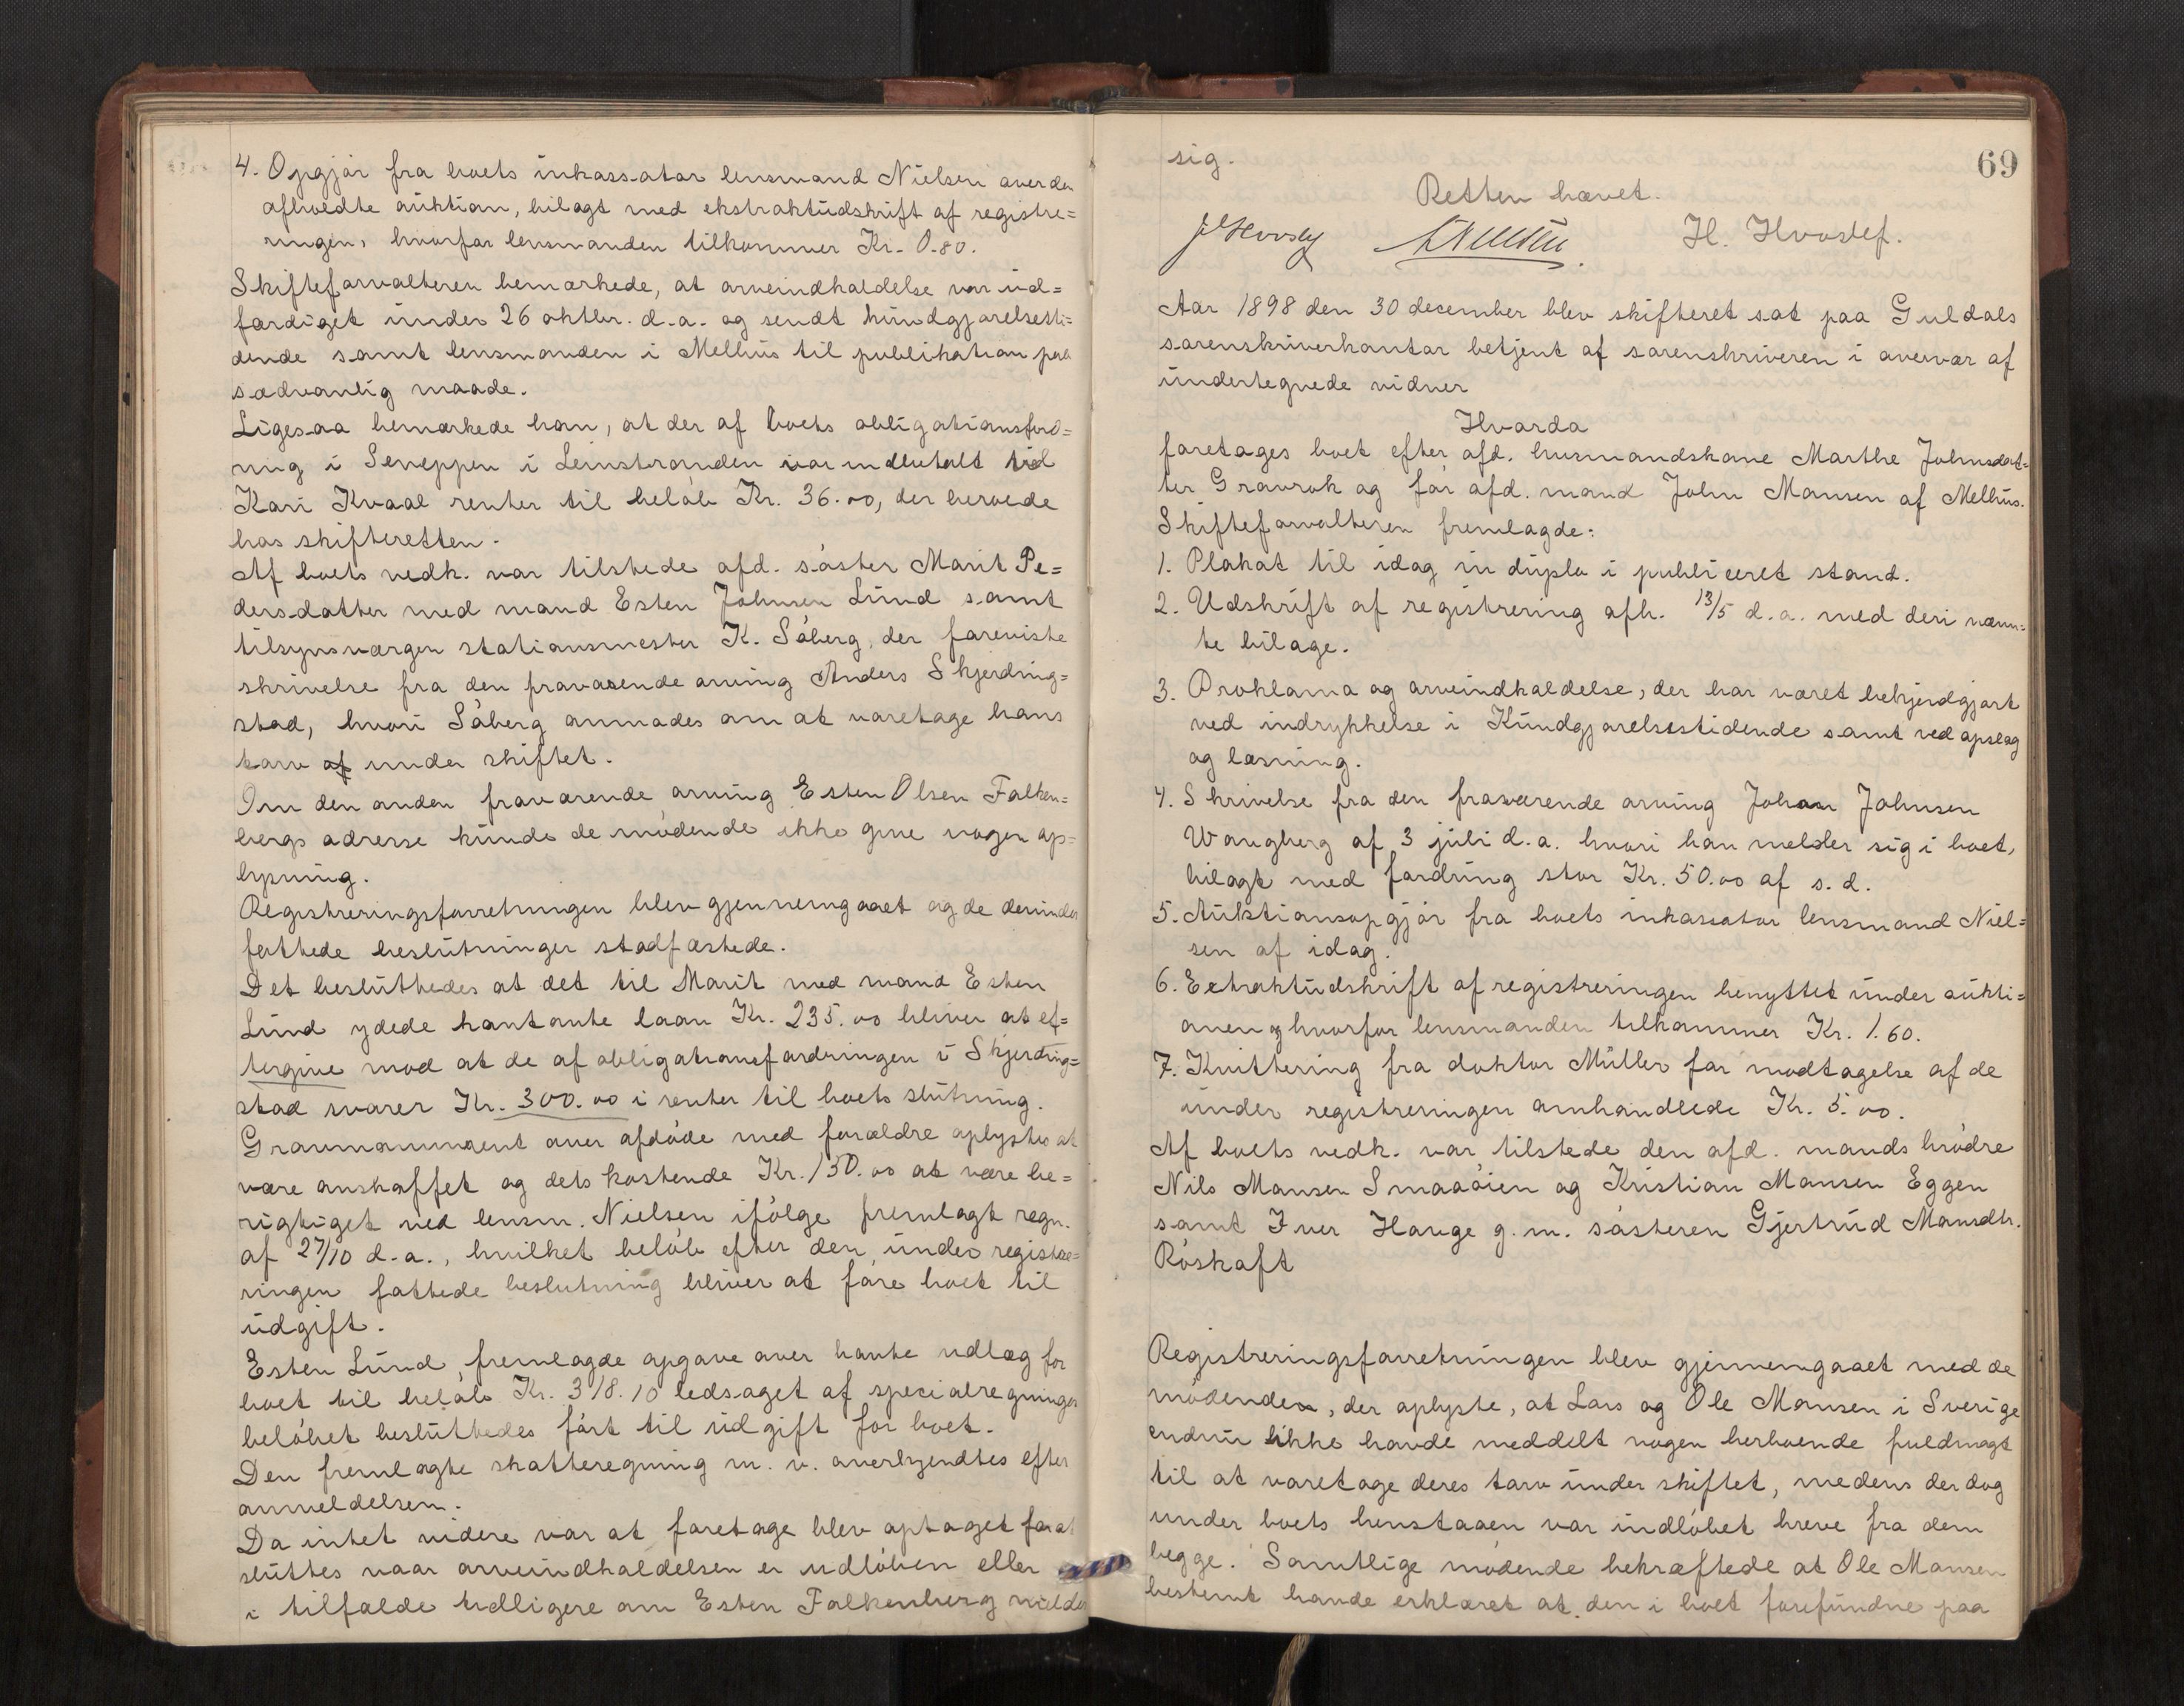 4. Opgjör fra boets inkassator lensmand Nielsen over den
afholdte auktion, bilagt med ekstraktudskrift af registre=
ringen, hvorfor lensmanden tilkommer Kr. 0.80.
Skifteforvalteren bemærkede, at arveindkaldelse var ud=
færdiget under 26 oktbr. d.a. og sendt kundgjørelsesti=
dende samt lensmanden i Melhus til publikation paa
sædvanlig maade.
Ligesaa bemærkede han, at der af boets obligationsford=
ring i Seneppen i Leinstranden var indbetalt ved
Kari Kvaal renter til beløb Kr. 36.00, der beroede
hos skifteretten.
Af boets vedk. var tilstede afd. søster Marit Pe=
dersdatter med mand Esten Johnsen Lund samt
tilsynsværgen stationsmester K. Söberg, der foreviste
skrivelse fra den fraværende arving Anders Skjerding=
stad, hvori Söberg anmodes om at varetage hans
tarv af under skiftet.
Om den anden fraværende arving Esten Olsen Falken=
bergs adresse kunde de mödende ikke give nogen op=
lysning.
Registreringsforretningen blev gjennemgaaet og de derunder
fattede beslutninger stadfæstede.
Det besluttedes at det til Marit med mand Esten
Lund ydede kontante laan Kr. 235.00 bliver at ef=
tergive mod at de af obligationsfordringen i Skjerding=
stad svarer Kr. 300.00 i renter til boets slutning.
Gravmonument over afdöde med forældre oplystes at
være anskaffet og dets kostende Kr. 150.00 at være be=
rigtiget ved lensm. Nielsen ifölge fremlagt regn.
af 27/10 d.a., hvilket belöb efter den under registre=
ringen fattede beslutning bliver at före boet til
udgift.
Esten Lund fremlagde opgave over havte udlæg for
boet til belöb Kr. 318.10 ledsaget af specialregninger
belöbet besluttedes fört til udgift for boet.
Den fremlagte skatteregning m. v. anerkjendtes efter
anmeldelsen.
Da intet videre var at foretage blev optaget for at
sluttes naar arveindkaldelsen er udlöben eller
i tilfælde tidligere om Esten Falkenberg melder
69
sig.
Retten hævet.
H. Hvoslef.
Aar 1898 den 30 december blev skifteret sat paa Guldals
sorenskriverkontor betjent af sorenskriveren i overvær af
undertegnede vidner
Hvorda
foretages boet efter afd. husmandskone Marthe Johnsdat=
ter Gravrok og før afd. mand John Monsen af Melhus.
Skifteforvalteren fremlagde:
1. Plakat til idag in duplo i publiceret stand.
2. Udskrift af registrering afh. 13/5 d.a. med deri nævn=
te bilage.
3. Proklama og arveindkaldelse, der har været bekjendgjort
ved indrykkelse i Kundgjørelsestidende samt ved opslag
og læsning.
4. Skrivelse fra den fraværende arving Johan Johnsen
Wangberg af 3 juli d.a. hvori han melder sig i boet,
bilagt med fordring stor Kr. 50.00 af s. d.
5. Auktionsopgjör fra boets inkassator lensmand Niel=
sen af idag.
6. Extraktudskrift af registreringen benyttet under aukti=
onen og hvorfor lensmanden tilkommer Kr. 1.60.
7. Kvittering fra doktor Müller for modtagelse af de
under registreringen omhandlede Kr. 5.00.
Af boets vedk. var tilstede den afd. mands brödre
Nils Monsen Smaaöien og Kristian Monsen Eggen
samt Iver Hauge g. m. søsteren Gjertrud Monsdtr.
Röskaft
Registreringsforretningen blev gjennemgaaet med de
mödende, der oplyste, at Lars og Ole Monsen i Sverige
endnu ikke havde meddelt nogen herboende fuldmagt
til at varetage deres tarv under skiftet, medens der dog
under boets henstaaen var indlöbet breve fra dem
begge. Samtlige mödende bekræftede at Ole Monsen
bestemt havde erklæret at den i boet forefundne paa